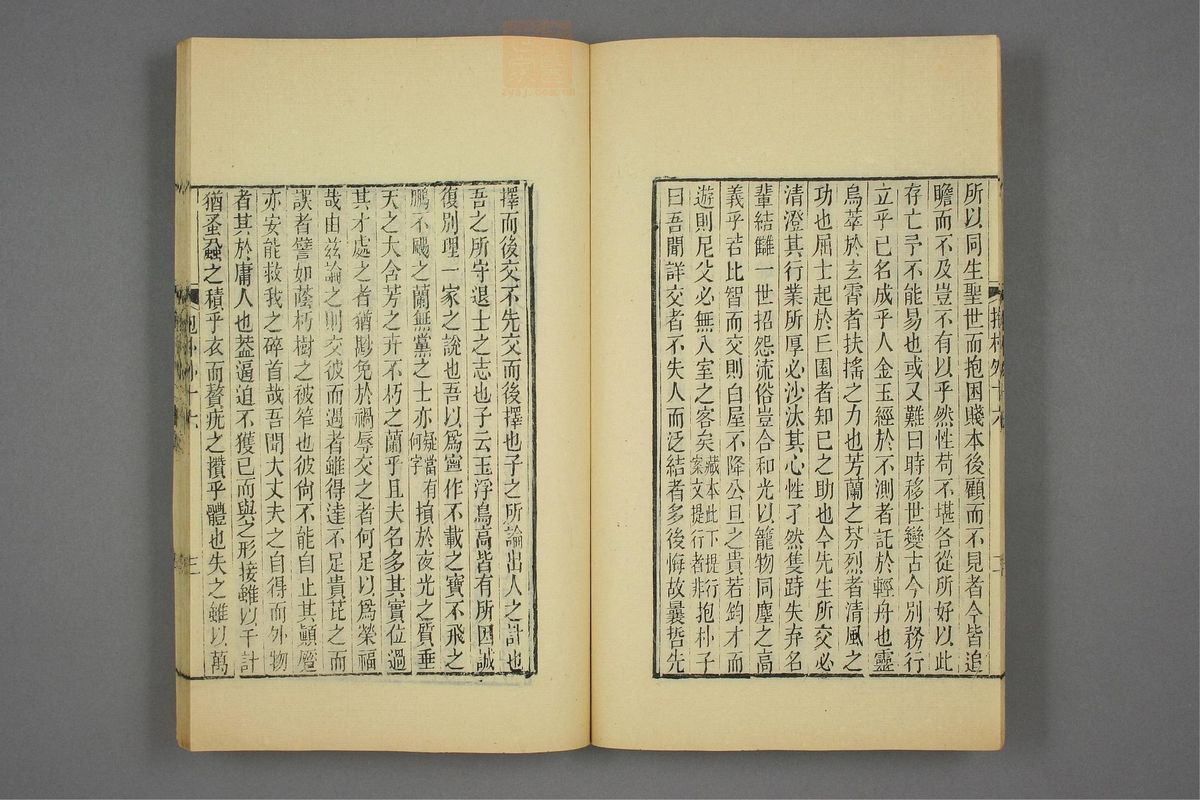 所以同生聖世而抱困賤本後顧而不見者今皆追
瞻而不及豈不有以乎然性苟不堪各從所好以此
存亡予不能易也或又難曰時移世變古今別務行
立乎已名成乎人金玉經於不測者託於輕舟也靈
烏萃於玄霄者扶搖之力也芳蘭之芬烈者清風之
功也屈士起於丘園者知已之助也今先生所交必
清澄其行業所厚必沙汰其心性孑然隻跱失弃名
輩結讎一世招怨流俗豈合和光以籠物同塵之高
義乎若比智而交則白屋不降公旦之貴若鈞才而
遊則尼父必無入室之客矣藏本此下提行案文提行者非抱朴子
曰吾聞詳交者不失人而泛結者多後悔故曩哲先
擇而後交不先交而後擇也子之所論出人之計也
吾之所守退士之志也子云玉浮烏高皆有所因誠
復別理一家之說也吾以爲寧作不載之寶不飛之
鵬不颺之蘭無黨之士亦疑當有何字損於夜光之質垂
天之大含芳之卉不朽之蘭乎且夫名多其實位過
其才處之者猶尠免於禍辱交之者何足以爲榮福
哉由茲論之則交彼而遇者雖得達不足貴芘之而
誤者譬如蔭朽樹之被笮也彼尙不能自止其顚蹷
亦安能救我之碎首哉吾聞大丈夫之自得而外物
者其於庸人也蓋逼迫不獲已而與之形接雖以千計
猶蚤蝨之積乎衣而贅疣之攢乎體也失之雖以萬